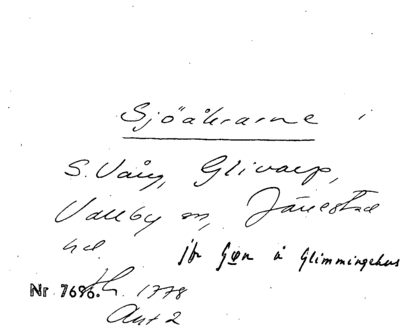 Sjöåkrarne i
S. Vång, Glivarp,
Vallby sn, Järrestad
hd jfr Gøn å Glimmingehus
Nr 7696. 1778
Akt 2